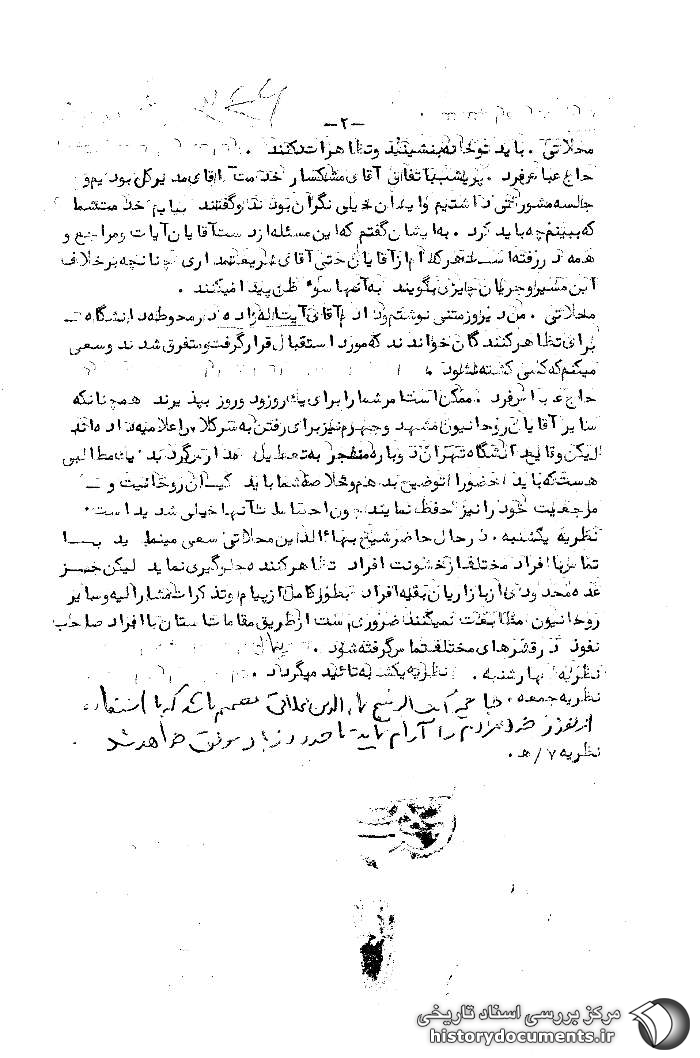 -۲-
محلاتی . باید توخانه بنشینند وتظاهرات نکنند .
حاج عباسفرد . پریشب باتفاق آقای مشکسار خدمت آقای مدیرکل بودیم و
جلسه مشورتی داشتیم وایشان خیلی نگران بودند وگفتند بیایم خدمت شما
که ببینم چه باید کرد . به ایشان گفتم که این مسئله از دست آقایان آیات ومراجع و
همه در رفته است هرکدام از آقایان حتی آقای شریعتمداری چنانچه برخلاف
این مسیر وجریان چیزی بگویند به آنها سوء ظن پیدا میکنند .
محلاتی . من دیروز متنی نوشتم ودادم آقای آیت اله زاده در محوطه دانشگاه
برای تظاهرکنندگان خواندند که مورد استقبال قرار گرفت ومتفرق شدند وسعی
میکنم که کسی کشته نشود .
حاج عباسفرد . ممکن است امر شما را برای یک روز دو روز بپذیرند همچنانکه
سایر آقایان روحانیون مشهد وجهرم نیز برای رفتن به سر کلاس اعلامیه داده اند
لیکن وقایع دانشگاه تهران دوباره منجر به تعطیل مدارس گردید یک مطالبی
هست که باید حضورا توضیح بدهم وخلاصه شما باید کیان روحانیت و
مرجعیت خود را نیز حفظ نمایید چون احساسات آنها خیلی شدید است .
نظریه یکشنبه . در حال حاضر شیخ بهاءالدین محلاتی سعی مینماید با
تماس با افراد مختلف از خشونت افراد تظاهرکننده جلوگیری نماید لیکن جز
عده محدودی از بازاریان بقیه افراد بطور کامل از پیام وتذکرات مشارالیه وسایر
روحانیون متابعت نمیکنند ضروری ست از طریق مقامات استان با افراد صاحب
نفوذ در قشرهای مختلف تماس گرفته شود .
نظریه چهارشنبه . نظریه یکشنبه تائید میگردد .
نظریه جمعه . چنانچه آیت اله شیخ بهاءالدین محلاتی مصمم باشد که با استفاده
از نفوذ خود مردم را آرام نماید تا حدود زیادی موفق خواهد شد .
نظریه ۷/ه .
مرکز بررسی اسناد تاریخی
historydocuments.ir